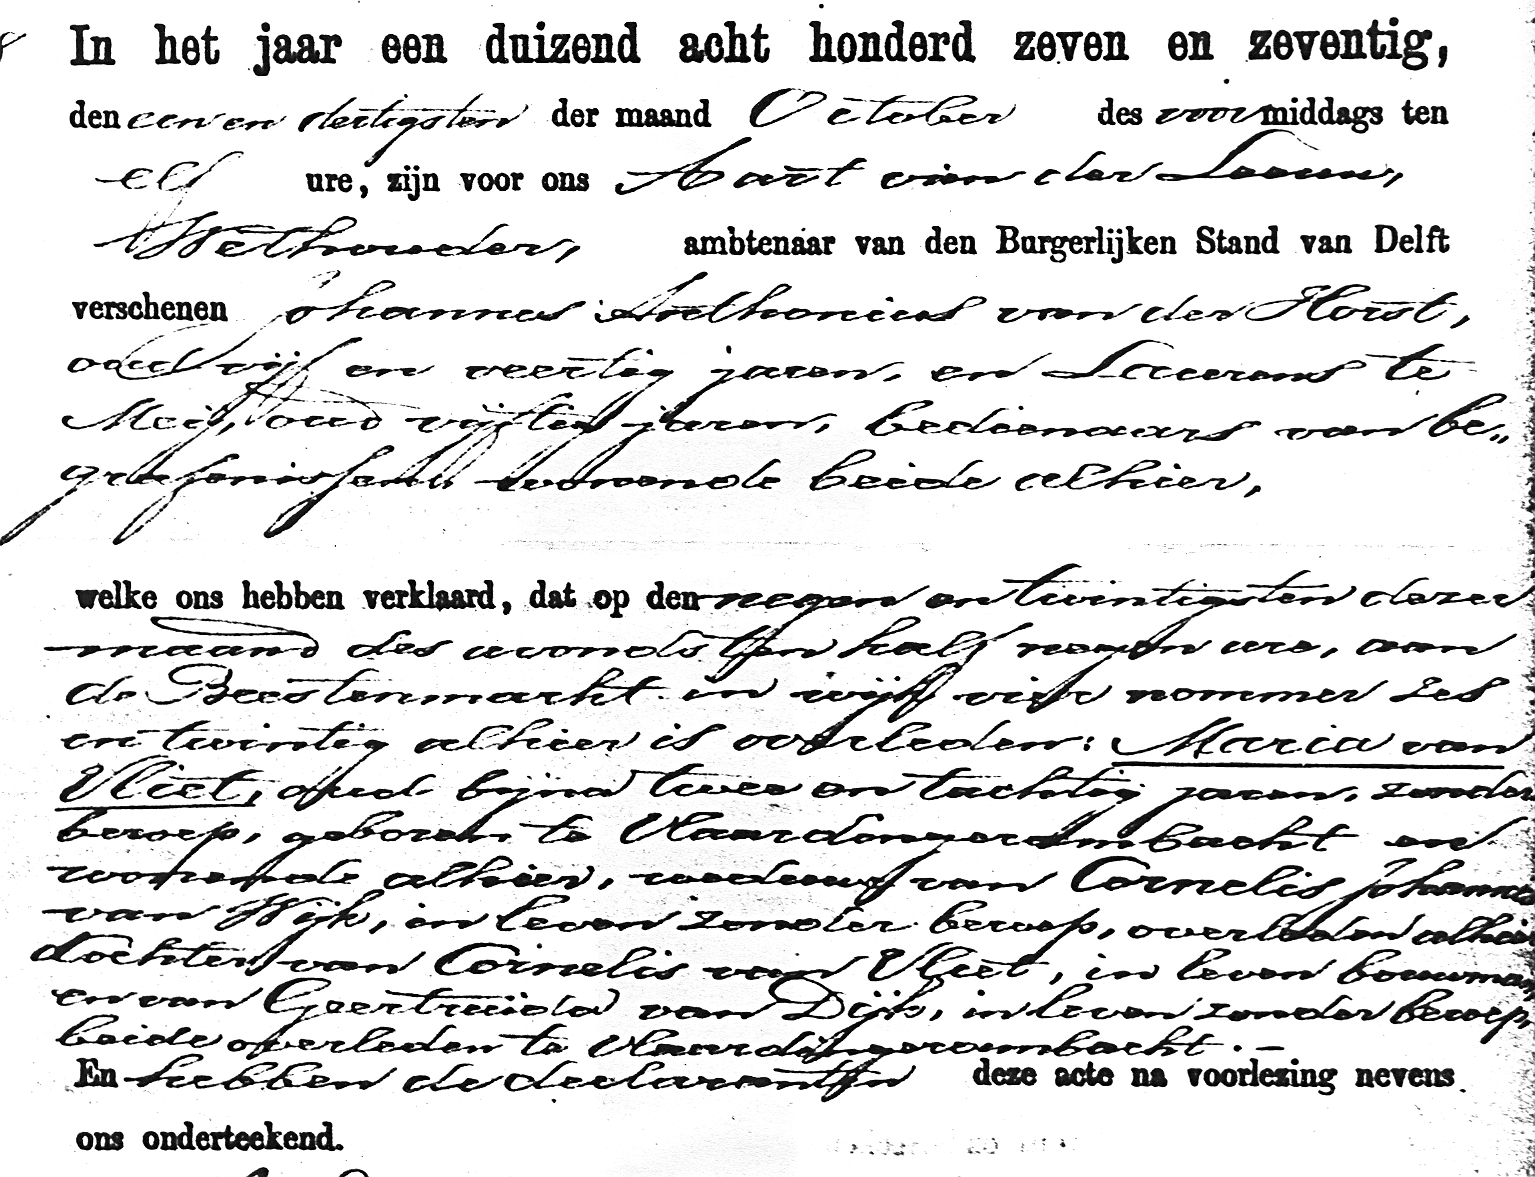 In het jaar een duizend acht honderd zeven en zeventig,
den een en dertigsten der maand October des voormiddags ten
elf ure, zijn voor ons Aart van der Leeuw,
Wethouder, ambtenaar van den Burgerlijken Stand van Delft
verschenen Johannes Anthonius van der Horst,
oud vijf en veertig jaren, en Laurens te
Meij, oud vijftig jaren, bedienaars van be„
grafenissen, wonende beide alhier,
welke ons hebben verklaard, dat op den negen en twintigsten dezer
maand des avonds ten half negen ure, aan
de Beestenmarkt in wijk vier nommer zes
en twintig alhier is overleden: Maria van
Vliet, oud bijna twee en tachtig jaren, zonder
beroep, geboren te Vlaardingerambacht en
wonende alhier, weduwe van Cornelis Johannes
van Wijk, in leven zonder beroep, overleden alhier
dochter van Cornelis van Vliet, in leven bouwman
en van Geertruida van Dijk, in leven zonder beroep,
beide overleden te Vlaardingerambacht. –
En hebben de declaranten deze acte na voorlezing nevens
ons onderteekend.